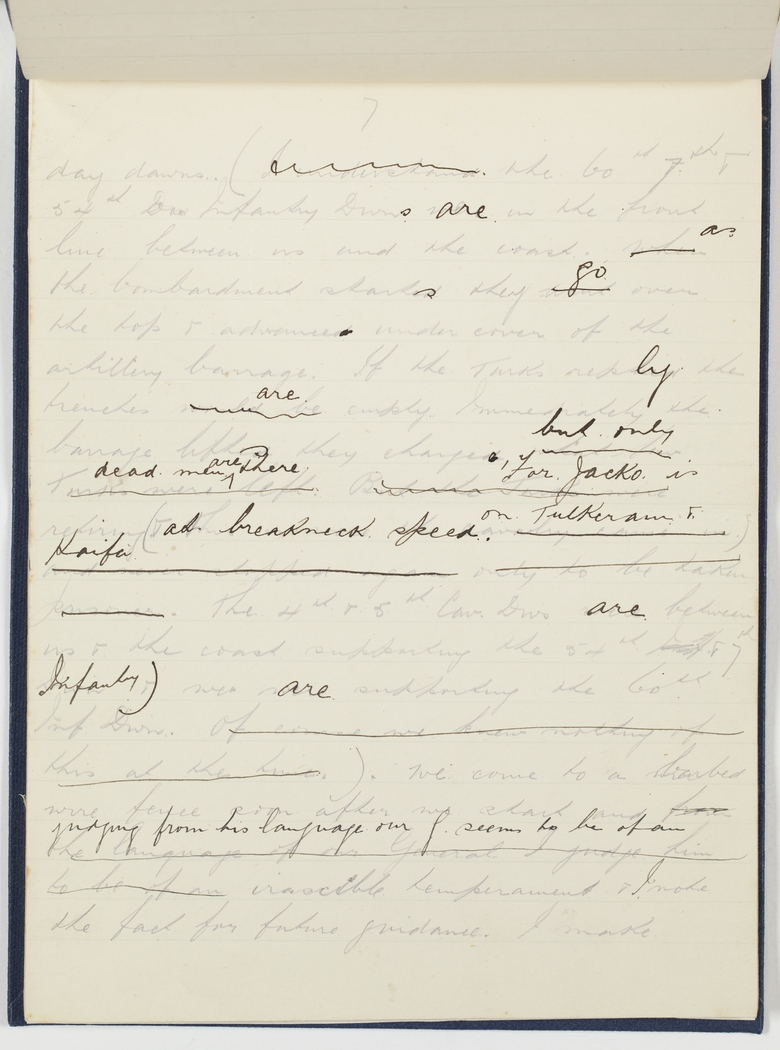 7
day dawns. (I understand the 60th 7th &
54th Infantry Divns are in the front
line between us and the coast. when as
the bombardment starts they go over
the top & advance under cover of the
artillery barrage. If the Turks reply the
trenches are empty. Immediately the
barrage lifts they charge but only
dead men are there, for Jacko is
Turks were left.
retiring (at breakneck speed on Tulkeram &
Haifa
and never stopped again only to be taken
prisoner. The 4th & 5th Cav. Dvns are between
us & the coast supporting the 54th & 7th
Infantry) are supporting the 60th
Inf Divn. Of course we knew nothing of
this at the time.). We come to a barbed
wire fence soon after we start and from
judging from his language our G. seems to be of an
the language of our General I judge him
to be of an irascible temperament & I note
the fact for future guidance. I make